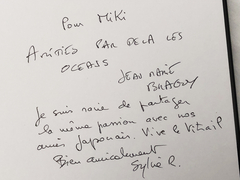 Pour Miki
AMITIÉS PAR DELÀ LES
OCEANS
JEAN MARIE
Je suis ravie de partager
la même passion avec nos
amis Japonais. Vive le Vitrail
Bien amicalement
Sylvie R.